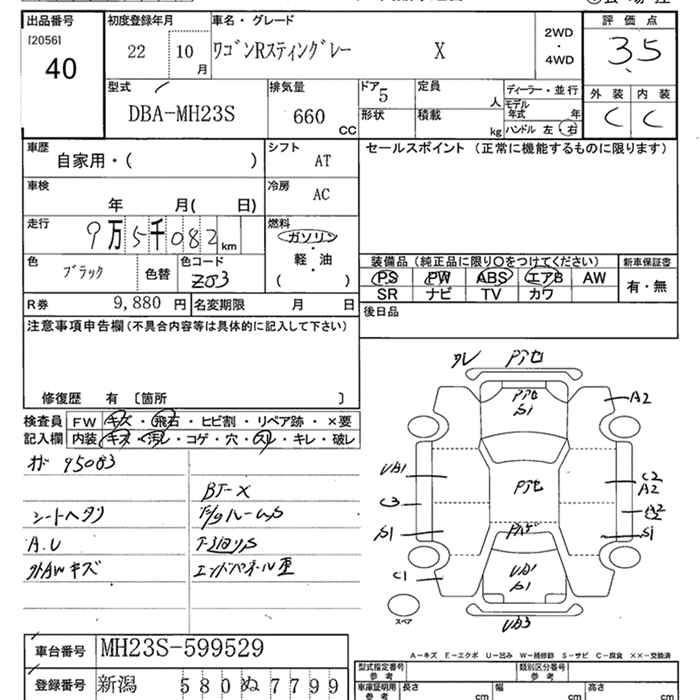 出品番号 初度登録年月 車名・グレード 2WD・4WD 評価点
[2056] 22 10月 ワゴンRスティングレー X 3.5
40
型式 排気量 ドア 5 定員 人 ディーラー・並行 外装 内装
DBA-MH23S 660 CC 形状 積載 kg モデル年式 年 C C
ハンドル 左・右
車歴 シフト セールスポイント (正常に機能するものに限ります)
自家用・( ) AT
車検 冷房
年 月( 日) AC
走行 燃料
9万5千082km ガソリン
軽・油
( )
色 色コード 装備品 (純正品に限り○をつけてください) 新車保証書
ブラック 色替 ZJ3 PS PW ABS エアB AW 有・無
SR ナビ TV カワ
R券 9,880 円 名変期限 月 日 後日品
注意事項申告欄 (不具合内容等は具体的に記入して下さい)
修復歴 有 〔箇所 〕
検査員 FW キズ・飛石・ヒビ割・リペア跡・×要
記入欄 内装 キズ・汚レ・コゲ・穴・スレ・キレ・破レ
95083
BT-X
シートヘタリ
A.U
外AWキズ エンドパネル歪
A2
S1
UA1
C2
A2
C3
A2
S1
S1
C1
UA1
S1
UB3
スペア
A-キズ E-エクボ U-凹み W-補修跡 S-サビ C-腐食 ××-交換済
車台番号 MH23S-599529 型式指定番号 参考 類別区分番号 参考
登録番号 新潟 580 ぬ 7799 車庫証明用 参考 長さ cm 幅 cm 高さ cm